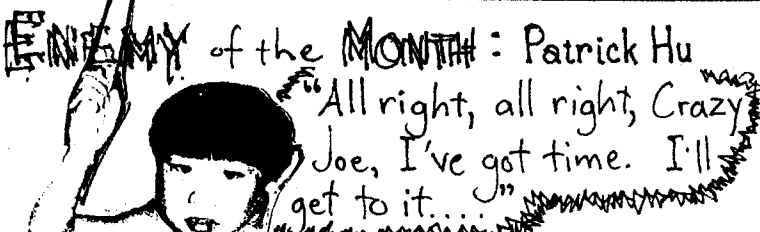 ENEMY of the MONTH: Patrick Hu
"All right, all right, Crazy
Joe, I've got time. I'll
get to it...."